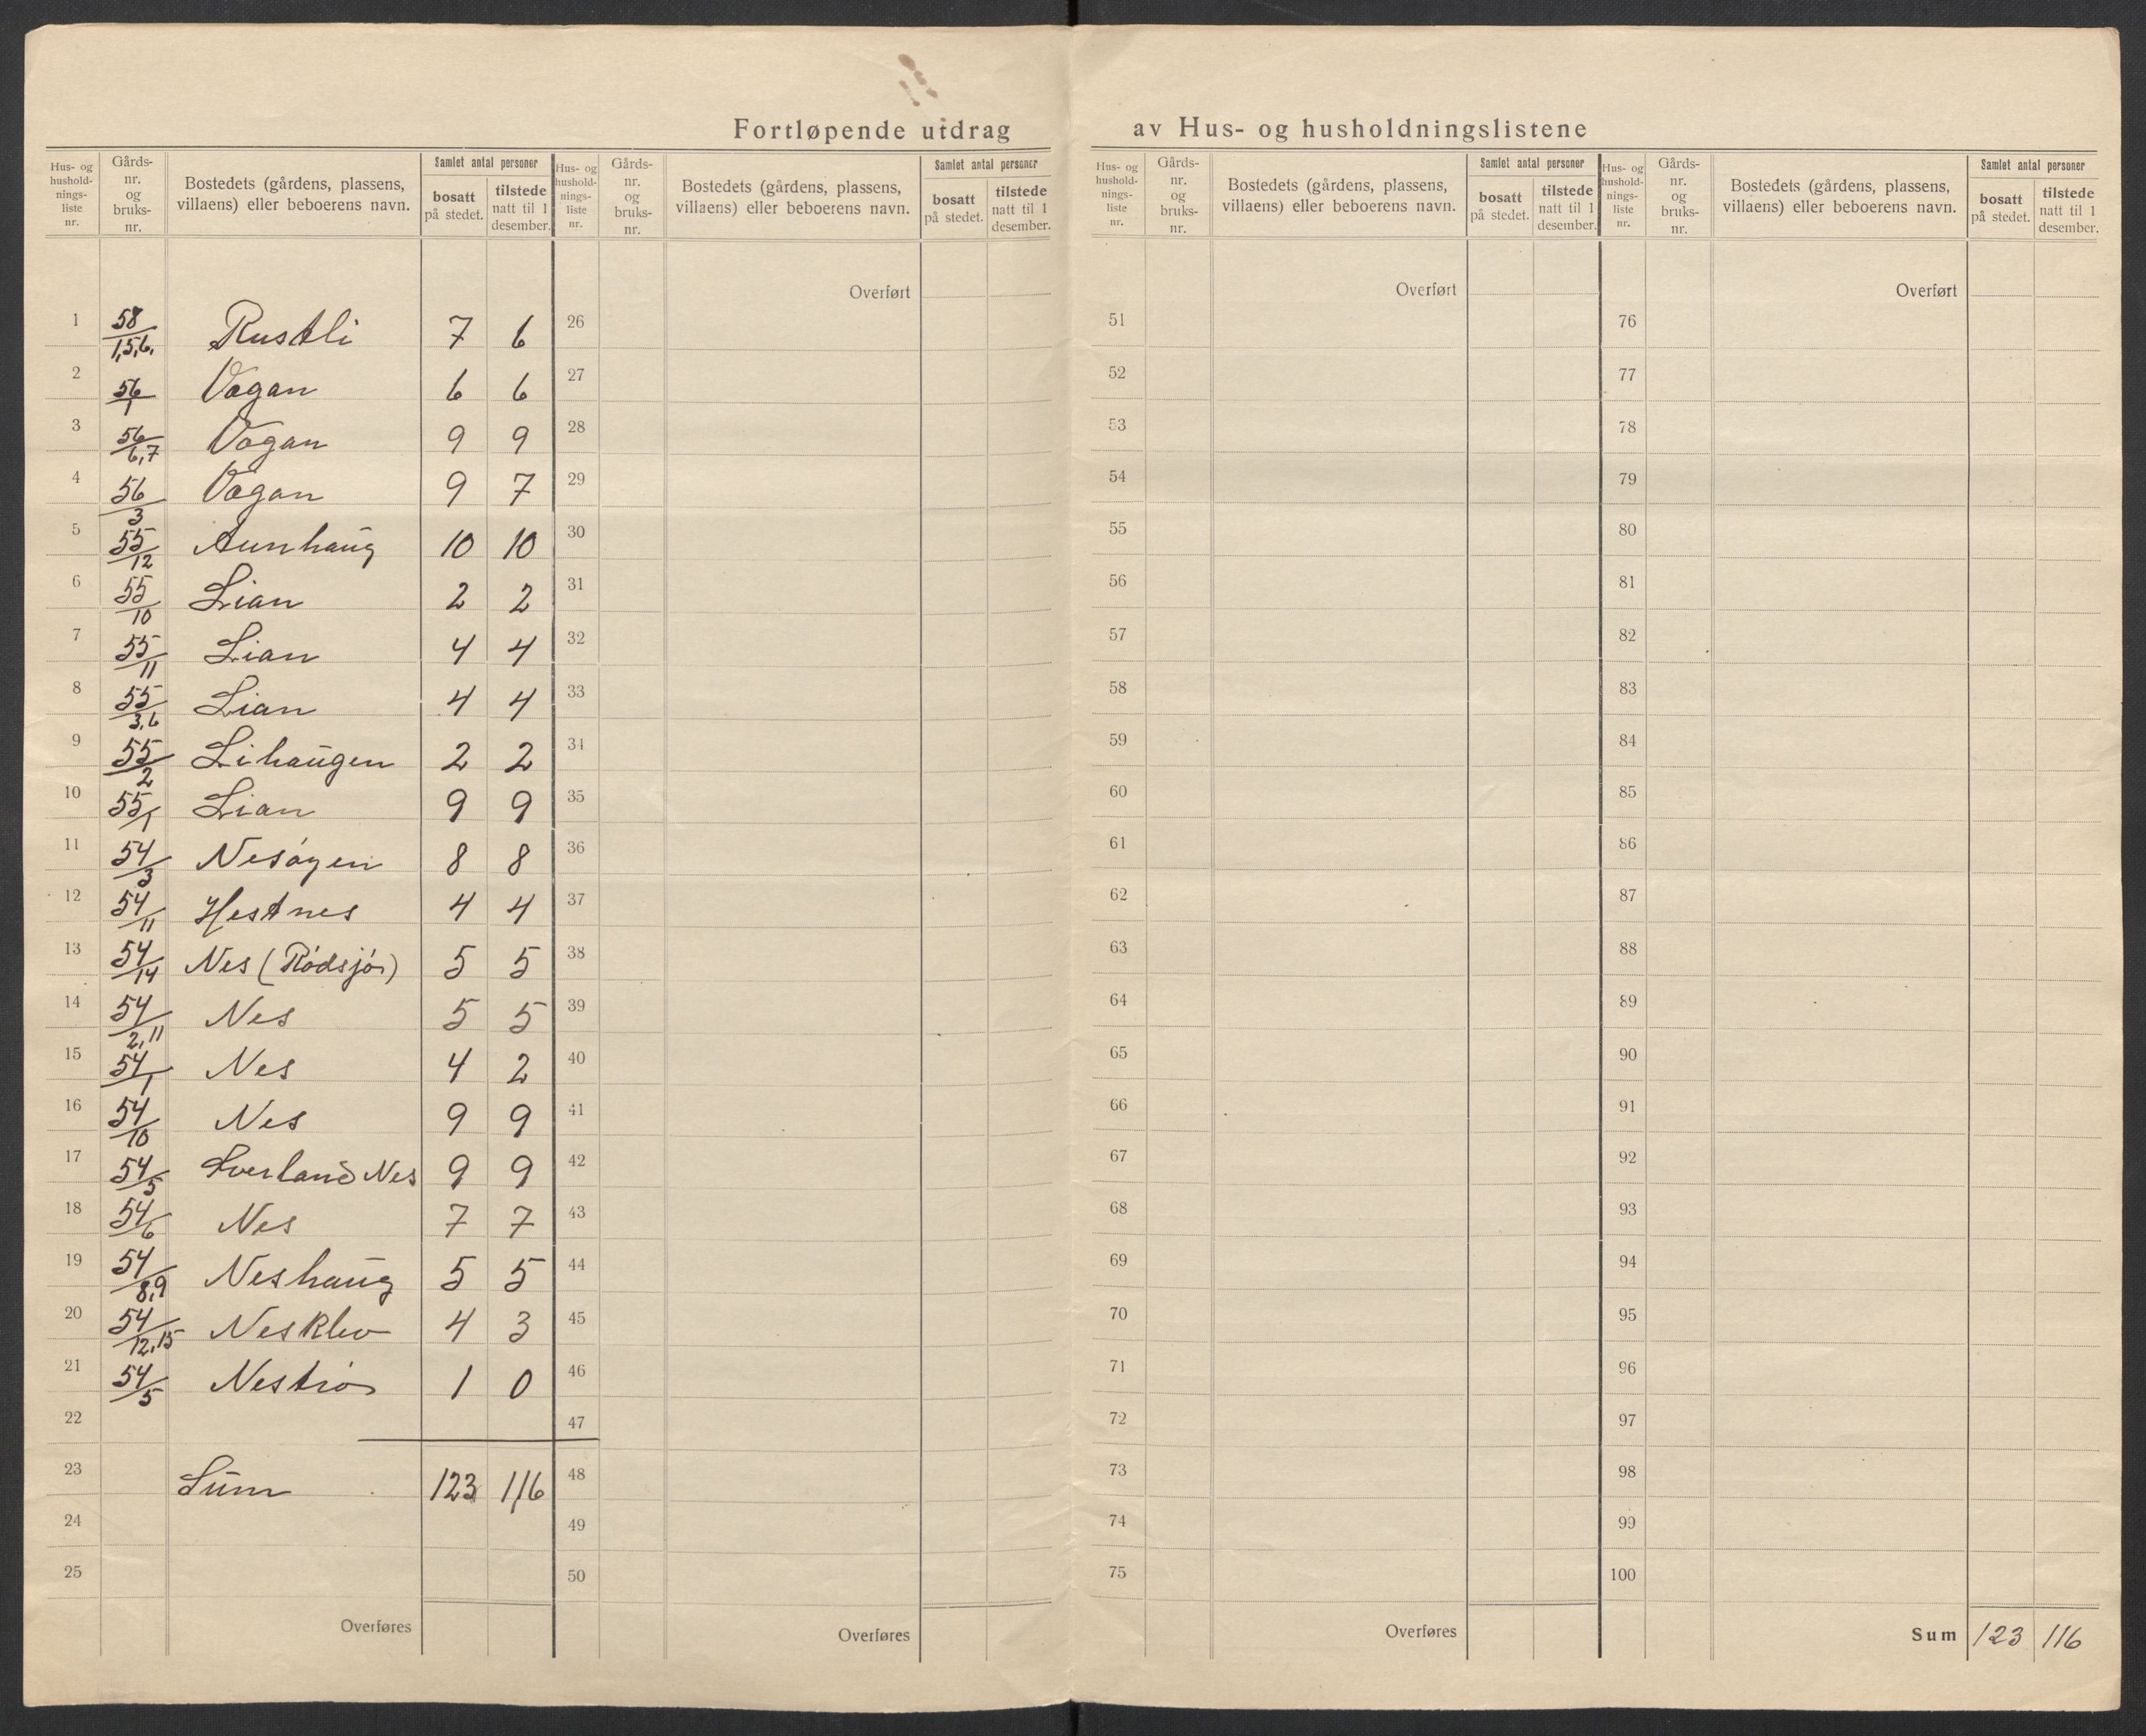 Fortløpende utdrag av Hus- og husholdningslistene
Hus- og hushold- nings- liste nr. | Gårds- nr. og bruks- nr. | Bostedets (gårdens, plassens, villaens) eller beboerens navn. | Samlet antal personer | bosatt på stedet. | tilstede natt til 1 desember.
Hus- og hushold- nings- liste nr. | Gårds- nr. og bruks- nr. | Bostedets (gårdens, plassens, villaens) eller beboerens navn. | Samlet antal personer | bosatt på stedet. | tilstede natt til 1 desember.
Hus- og hushold- nings- liste nr. | Gårds- nr. og bruks- nr. | Bostedets (gårdens, plassens, villaens) eller beboerens navn. | Samlet antal personer | bosatt på stedet. | tilstede natt til 1 desember.
Hus- og hushold- nings- liste nr. | Gårds- nr. og bruks- nr. | Bostedets (gårdens, plassens, villaens) eller beboerens navn. | Samlet antal personer | bosatt på stedet. | tilstede natt til 1 desember.
1 58/1,5,6. Rustli 7 6
2 56/1 Vagan 6 6
3 56/6,7 Vagan 9 9
4 56/3 Vagan 9 7
5 55/12 Aunhaug 10 10
6 55/10 Lian 2 2
7 55/11 Lian 4 4
8 55/3,6 Lian 4 4
9 55/2 Lihaugen 2 2
10 55/1 Lian 9 9
11 54/3 Nesøyen 8 8
12 54/11 Hestnes 4 4
13 54/14 Nes (Rødsjø) 5 5
14 54/2,11 Nes 5 5
15 54/1 Nes 4 2
16 54/10 Nes 9 9
17 54/5 Sverland Nes 9 9
18 54/6 Nes 7 7
19 54/8,9 Neshaug 5 5
20 54/12,15 Nesklev 4 3
21 54/5 Nestrø 1 0
22
23 Sum 123 116
24
25
Overføres
Overført
26
27
28
29
30
31
32
33
34
35
36
37
38
39
40
41
42
43
44
45
46
47
48
49
50
Overføres
Overført
51
52
53
54
55
56
57
58
59
60
61
62
63
64
65
66
67
68
69
70
71
72
73
74
75
Overføres
Overført
76
77
78
79
80
81
82
83
84
85
86
87
88
89
90
91
92
93
94
95
96
97
98
99
100
Sum 123 116